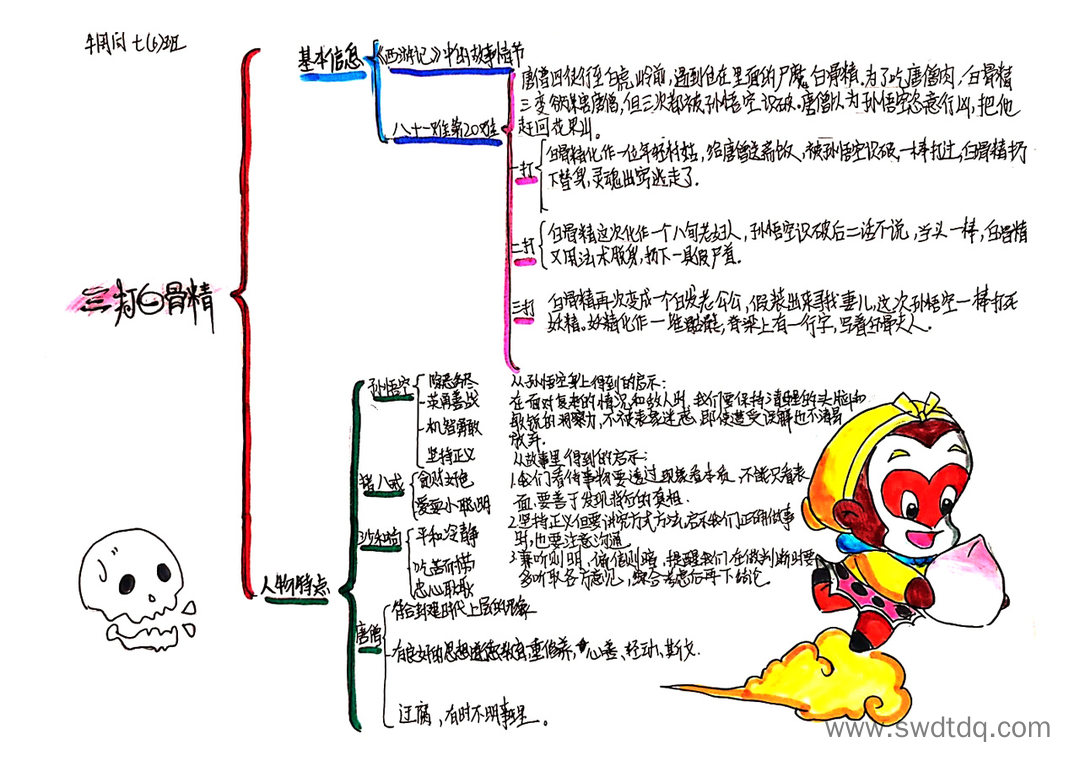 七(6)班
三打白骨精
基本信息
《西游记》中的故事情节
八十一难第20难
唐僧四使行至白虎岭前,遇到住在里面的尸魔白骨精。为了吃唐僧肉,白骨精
三变 唐僧,但三次都被孙悟空识破。唐僧以为孙悟空恣意行凶,把他
赶回花果山。
一打
白骨精化作一位年轻村姑,给唐僧送斋饭,被孙悟空识破,一棒打过,白骨精扔
下替身,灵魂出窍逃走了.
二打
白骨精这次化作一个八旬老妇人,孙悟空识破后二话不说,当头一棒,白骨精
又用法术脱身,扔下一具假尸首.
三打
白骨精再次变成一个白发老公公,假装出来寻找妻儿,这次孙悟空一棒打死
妖精。妖精化作一堆骷髅,脊梁上有一行字,写着白骨夫人.
人物特点
孙悟空
嫉恶如仇
英勇善战
机智勇敢
坚持正义
猪八戒
贪财好色
爱耍小聪明
沙和尚
平和冷静
吃苦耐劳
忠心耿耿
唐僧
符合封建时代上层的形象
有良好的思想道德教育,重修养,心善、好动、其仪.
迂腐,有时不明事理。
从孙悟空身上得到的启示:
在面对复杂的情况和敌人时,我们要保持清醒的头脑和
敏锐的洞察力,不被表象迷惑,即使遭受误解也不轻易
放弃.
从故事里得到的启示:
1.我们看待事物要透过现象看本质,不能只看表
面,要善于发现背后的真相.
2.坚持正义但要讲究方式方法,启示我们正确做事
时,也要注意沟通.
3.兼听则明,偏信则暗,提醒我们在做判断时要
多听取各方意见,综合考虑后再下结论.
www.swdtdq.com